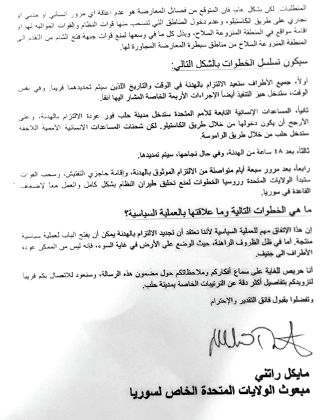 المتطلبات. لكن بشكل عام، فإن المتوقع من فصائل المعارضة هو عدم إعاقة أي مرور إنساني أو مدني أو
تجاري على طريق الكاستيلو، وعدم دخول المناطق التي تنسحب منها قوات النظام والقوات الموالية لها أو
إقامة مواقع في المنطقة المنزوعة السلاح، وبذل كل ما في وسعها لمنع قوات جبهة فتح الشام من التقدم الى
المنطقة المنزوعة السلاح من مناطق سيطرة المعارضة المجاورة لها.
سيكون تسلسل الخطوات بالشكل التالي:
أولاً، جميع الأطراف ستعيد الالتزام بالهدنة في الوقت والتاريخ اللذين سيتم تحديدهما قريبا. وفي نفس
الوقت، ستدخل حيز التنفيذ أيضاً الإجراءات الأربعة الخاصة المشار إليها آنفاً.
ثانياً، المساعدات الإنسانية التابعة للأمم المتحدة ستدخل مدينة حلب فور عودة الالتزام بالهدنة، وعلى
الأرجح أن يكون دخولها من خلال طريق الكاستيلو. لكن شحنات المساعدات الإنسانية الأممية اللاحقة
ستدخل حلب من خلال طريق الراموسة.
ثالثاً، بعد ٤٨ ساعة من الهدنة، وفي حال نجاحها، سيتم تمديدها.
رابعاً، بعد مرور سبعة أيام متواصلة من الالتزام الموثوق بالهدنة، وإقامة حاجزي التفتيش، وسحب القوات
ستبدأ الولايات المتحدة وروسيا الخطوات لمنع تحليق طيران النظام بشكل كامل والعمل معاً لإضعاف
القاعدة في سوريا.
ما هي الخطوات التالية وما علاقتها بالعملية السياسية؟
إن هذا الاتفاق مهم للعملية السياسية لأننا نعتقد أن تجديد الالتزام بالهدنة يمكن أن يفتح الباب لعملية سياسية
منتجة. أما في ظل الظروف الراهنة، حيث الوضع على الأرض في غاية السوء، فإنه ليس من الممكن عودة
الأطراف الى جنيف.
أنا حريص للغاية على سماع أفكاركم وملاحظاتكم حول مضمون هذه الرسالة، وسنعود للاتصال بكم قريبا
لتزويدكم بتفاصيل أكثر دقة عن الترتيبات الخاصة بمدينة حلب.
وتفضلوا بقبول فائق التقدير والاحترام
مايكل راتني
مبعوث الولايات المتحدة الخاص لسوريا